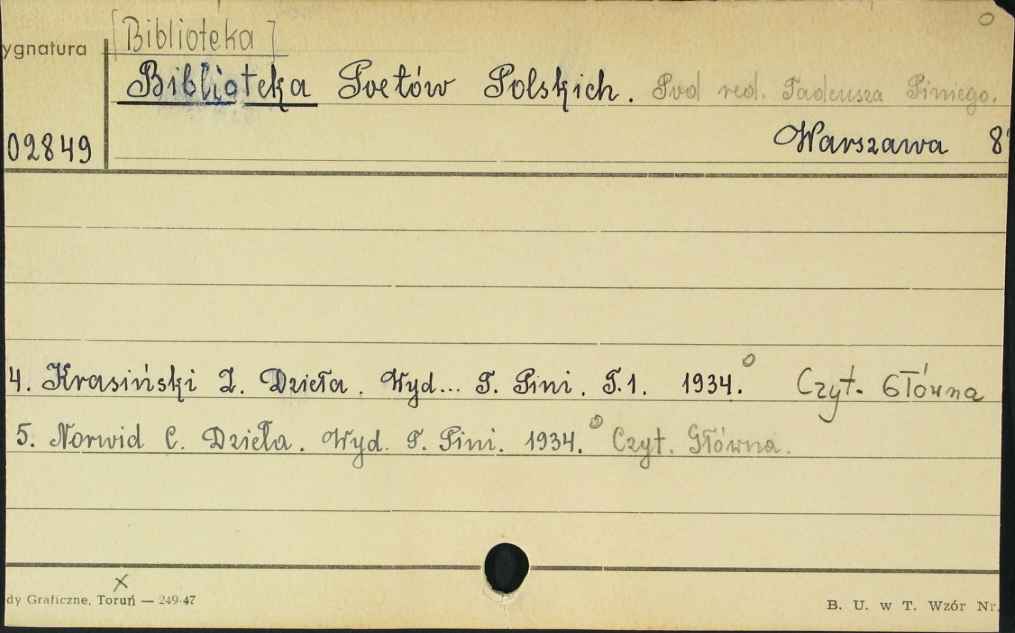 [Biblioteka]
ygnatura
Biblioteka Poetów Polskich. Pod red. Tadeusza Piniego.
02849
Warszawa 8°
4. Krasiński Z. Dzieła. Wyd... T. Pini. T.1. 1934. Czyt. Główna
5. Norwid C. Dzieła. Wyd. T. Pini. 1934. Czyt. Główna.
dy Graficzne, Toruń — 249-47
B. U. w T. Wzór Nr.